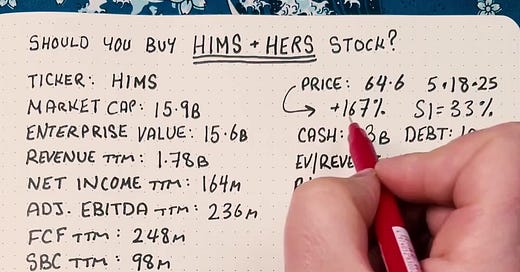 SHOULD YOU BUY HIMS + HERS STOCK?
TICKER: HIMS
MARKET CAP: 15.9B
ENTERPRISE VALUE: 15.6B
REVENUE TTM: 1.78B
NET INCOME TTM: 164M
ADJ. EBITDA TTM: 236M
FCF TTM: 248M
SBC TTM: 98M
PRICE: 64.6 5.18.25
→ +167% SI = 33%
CASH: DEBT: